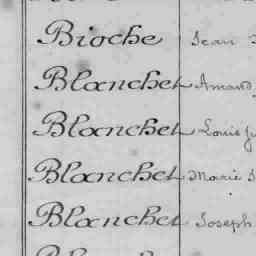 Bioche Jean
Blanchet Amand
Blanchet Louis
Blanchet Marie
Blanchet Joseph